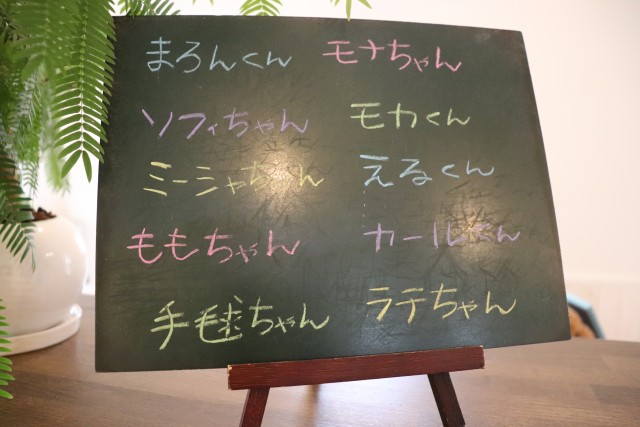 まろんくん モナちゃん
ソフィちゃん モカくん
ミーシャちゃん えるくん
ももちゃん カールくん
手毬ちゃん ラテちゃん